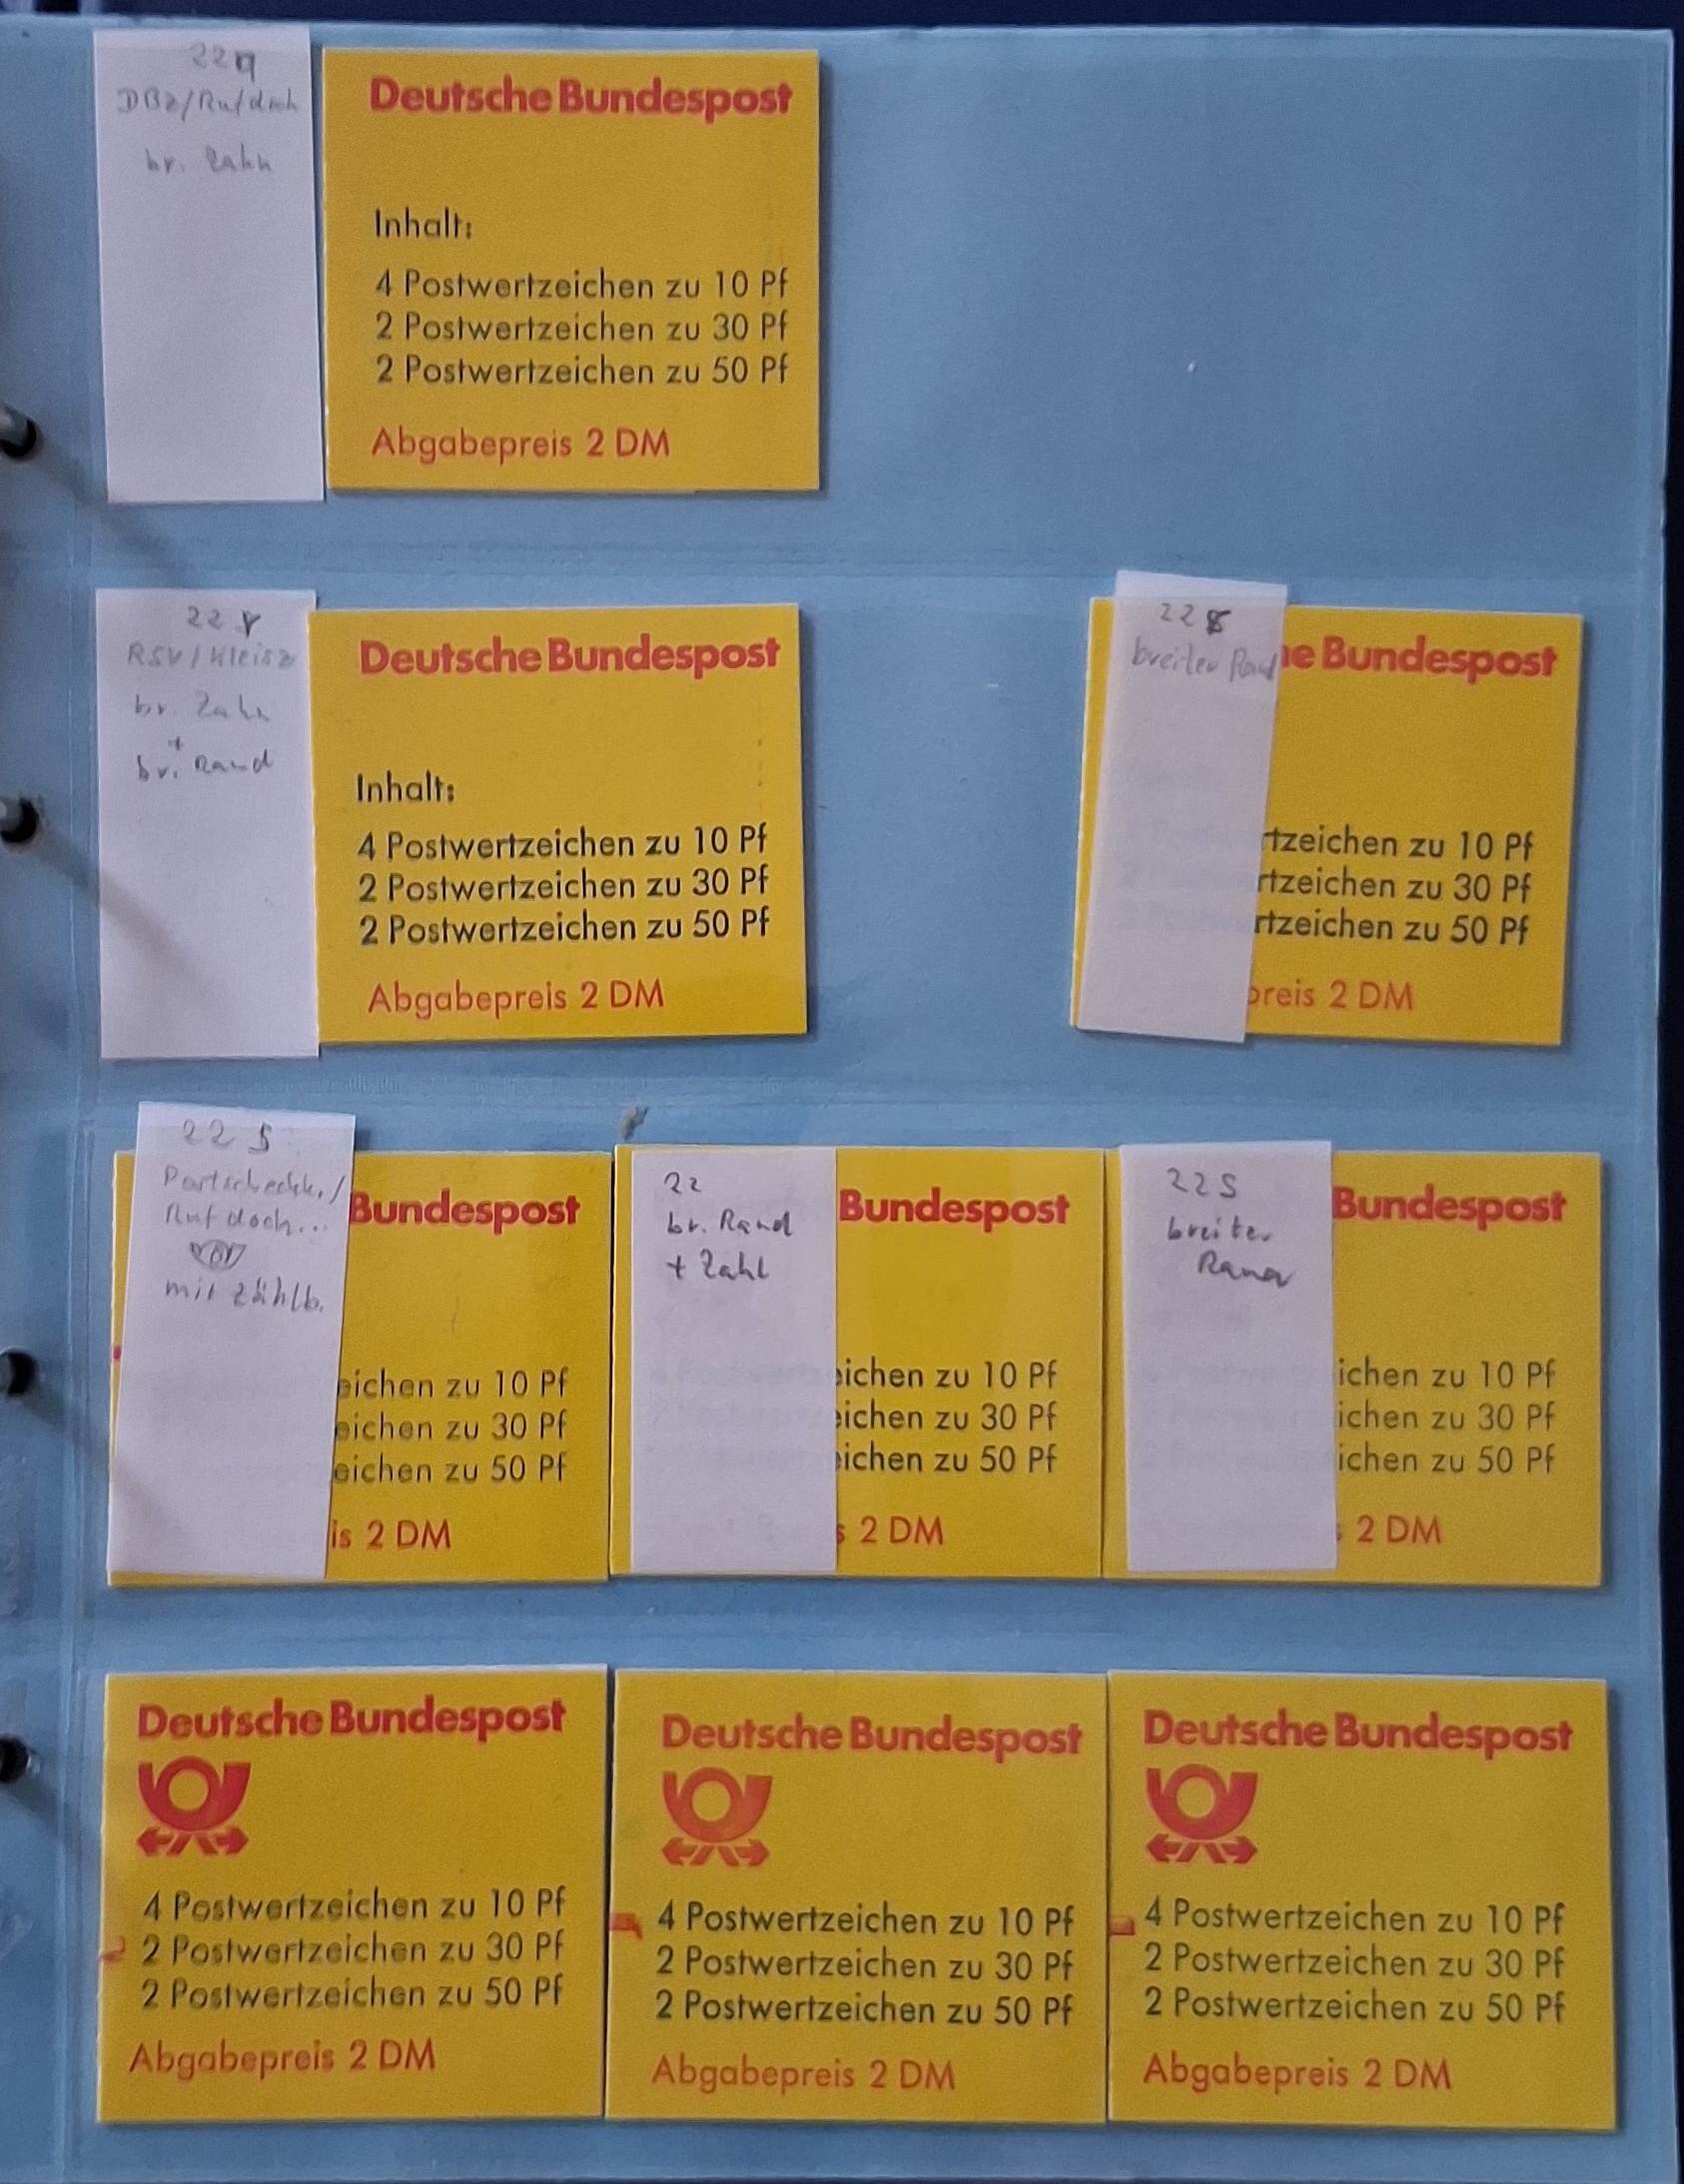 22q
DBZ/Rufdoch
br. Zahn
Deutsche Bundespost
Inhalt:
4 Postwertzeichen zu 10 Pf
2 Postwertzeichen zu 30 Pf
2 Postwertzeichen zu 50 Pf
Abgabepreis 2 DM
22 r
RSV/Kleisz
br. Zahn
+
br. Rand
Deutsche Bundespost
Inhalt:
4 Postwertzeichen zu 10 Pf
2 Postwertzeichen zu 30 Pf
2 Postwertzeichen zu 50 Pf
Abgabepreis 2 DM
22
breiter Rand
he Bundespost
rtzeichen zu 10 Pf
rtzeichen zu 30 Pf
rtzeichen zu 50 Pf
preis 2 DM
22 s
Postscheckk./
Ruf doch...
mit Zählb.
Bundespost
eichen zu 10 Pf
eichen zu 30 Pf
eichen zu 50 Pf
is 2 DM
22
br. Rand
+ Zahl
Bundespost
eichen zu 10 Pf
eichen zu 30 Pf
eichen zu 50 Pf
s 2 DM
22 s
breiter
Rand
Bundespost
ichen zu 10 Pf
ichen zu 30 Pf
ichen zu 50 Pf
s 2 DM
Deutsche Bundespost
4 Postwertzeichen zu 10 Pf
2 Postwertzeichen zu 30 Pf
2 Postwertzeichen zu 50 Pf
Abgabepreis 2 DM
Deutsche Bundespost
4 Postwertzeichen zu 10 Pf
2 Postwertzeichen zu 30 Pf
2 Postwertzeichen zu 50 Pf
Abgabepreis 2 DM
Deutsche Bundespost
4 Postwertzeichen zu 10 Pf
2 Postwertzeichen zu 30 Pf
2 Postwertzeichen zu 50 Pf
Abgabepreis 2 DM